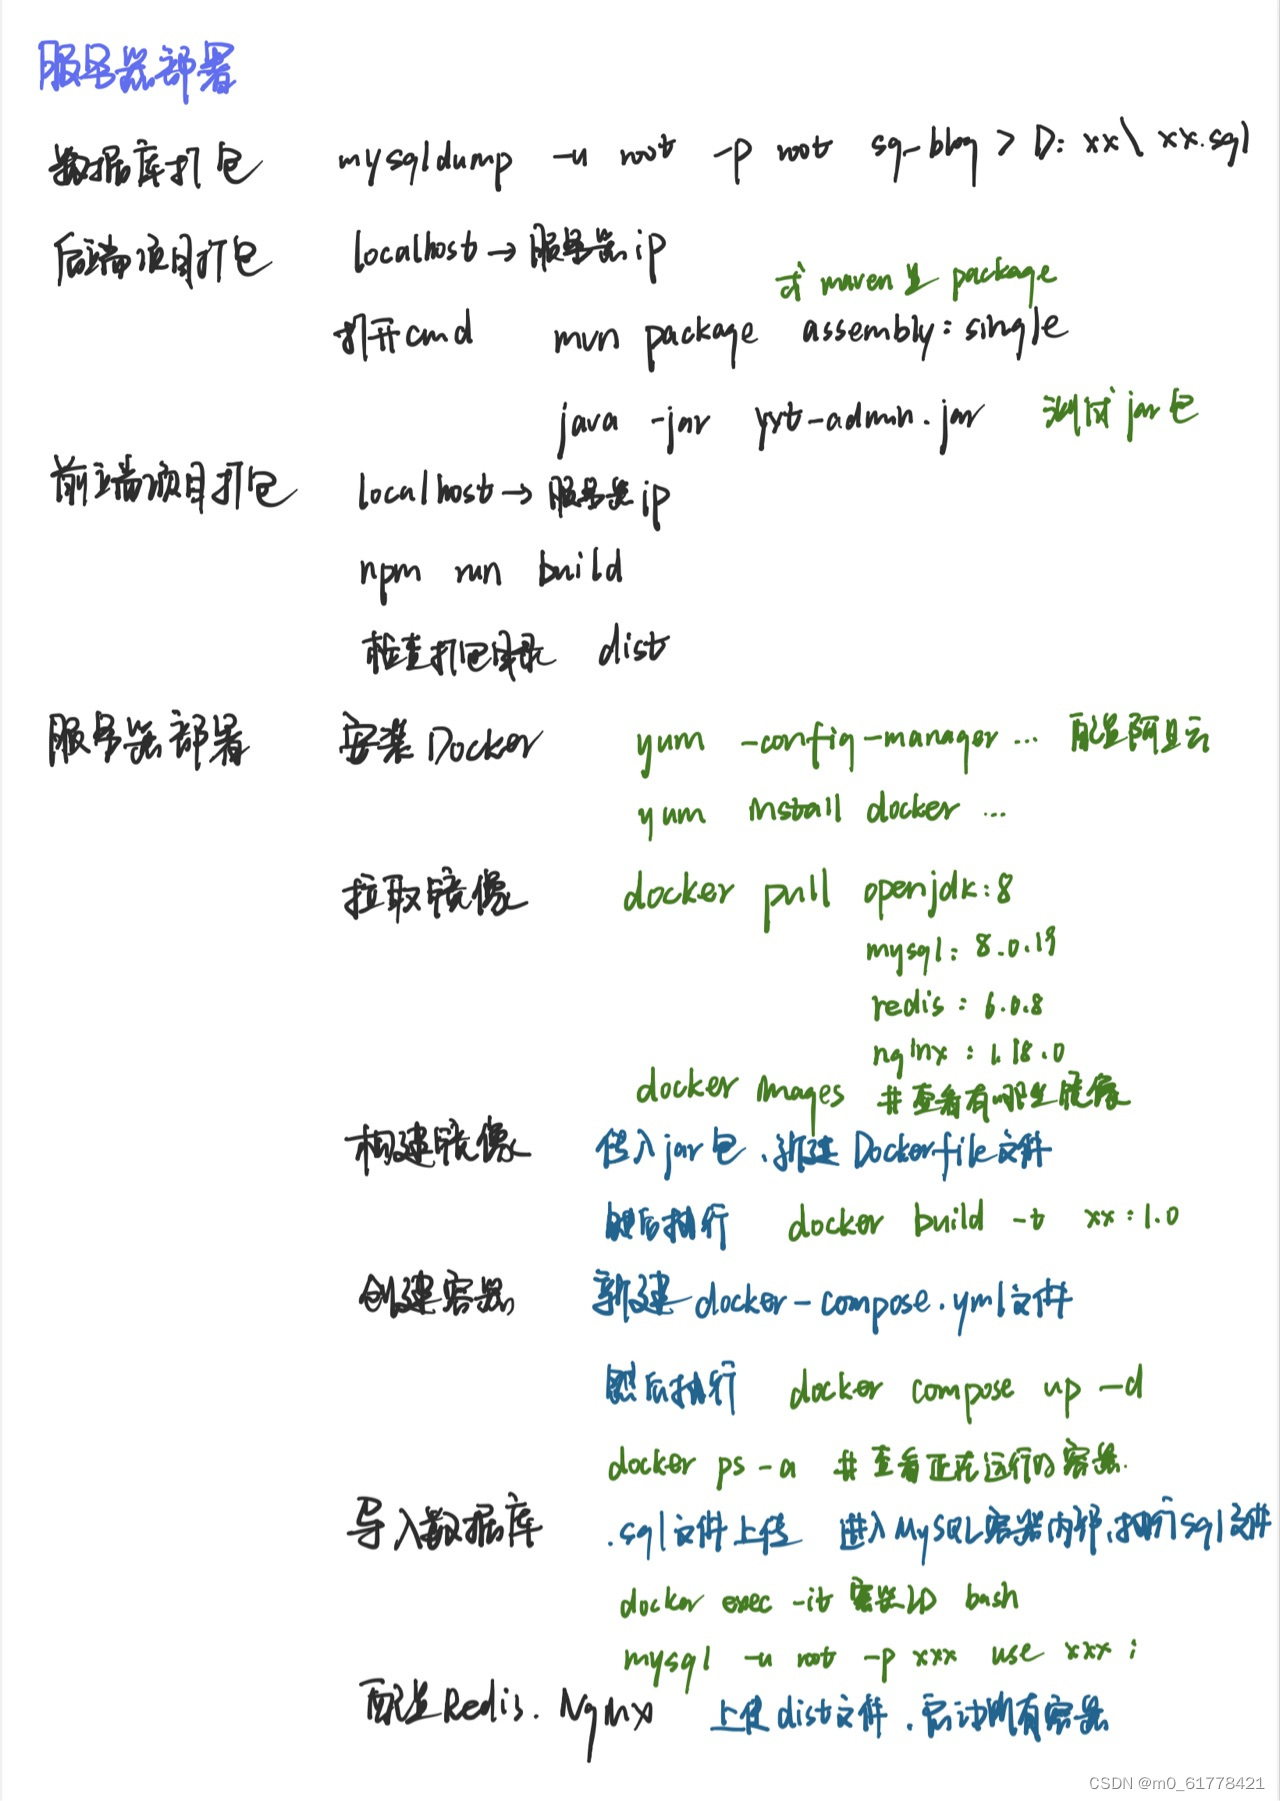 服务器部署
数据库打包 mysqldump -u root -p root sg-blog > D: xx\ xx.sql
后端项目打包 localhost → 服务器ip
或 maven里 package
打开cmd mvn package assembly:single
java -jar yyt-admin.jar 测试jar包
前端项目打包 localhost → 服务器ip
npm run build
检查打包目录 dist
服务器部署 安装Docker yum -config-manager ... 配置阿里云
yum install docker ...
拉取镜像 docker pull openjdk:8
mysql: 8.0.19
redis: 6.0.8
nginx: 1.18.0
docker images #查看有哪些镜像
构建镜像 传入jar包、新建 Dockerfile文件
然后执行 docker build -t xx:1.0
创建容器 新建docker-compose.yml文件
然后执行 docker compose up -d
docker ps -a #查看正在运行的容器.
导入数据库 .sql文件上传 进入MySQL容器内部、执行sql文件
docker exec -it 容器ID bash
mysql -u root -p xxx use xxx;
配置Redis. Nginx 上传dist文件、启动所有容器
CSDN @m0_61778421